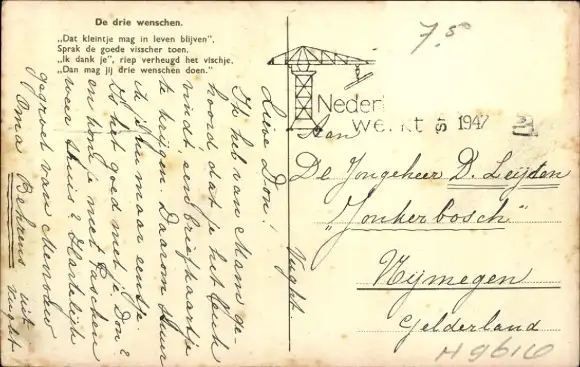 De drie wenschen.
„Dat kleintje mag in leven blijven",
Sprak de goede visscher toen.
„Ik dank je", riep verheugd het vischje,
„Dan mag jij drie wenschen doen."
Lieve Don!
Ik heb van Mama ge-
hoord dat je het leuk
vindt een briefkaartje
te krijgen. Daarom stuur
ik je nu maar eentje.
Is het goed met je, Don?
en kom je met Paschen
weer thuis? Hartelijk
gegroet van Mevrouw
Oma Behrens uit
Vught
Vught.
7.50
Nederl
werkt
1947
Aan
De Jongeheer D. Leijten
"Jonkerbosch"
Nijmegen
Gelderland
H9616